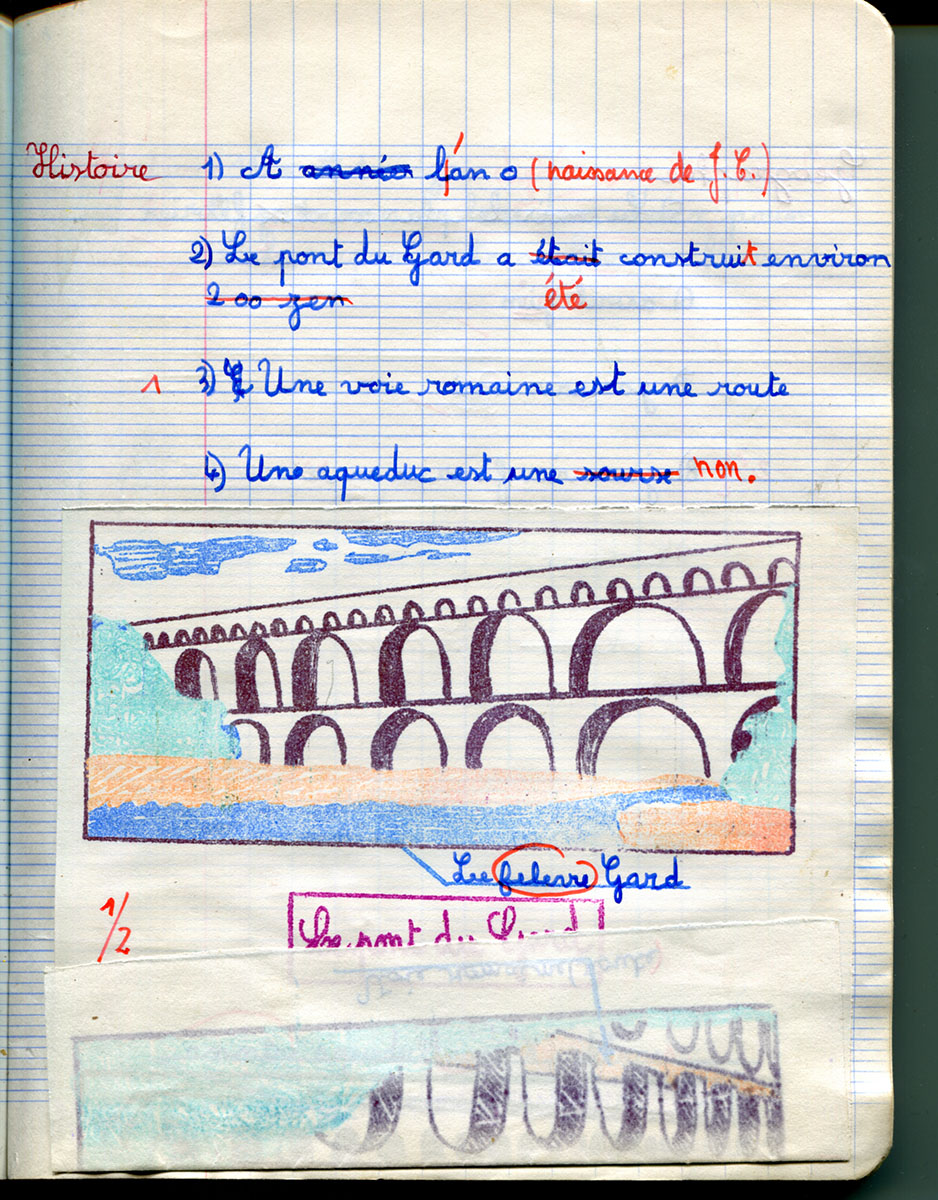 Histoire 1) A année l'an 0 (naissance de J.C.)
2) Le pont du Gard a était construit environ
200 zen été
1 3) Une voie romaine est une route
4) Une aqueduc est une sourse non.
Le feleuve Gard
1/2
Le pont du Gard